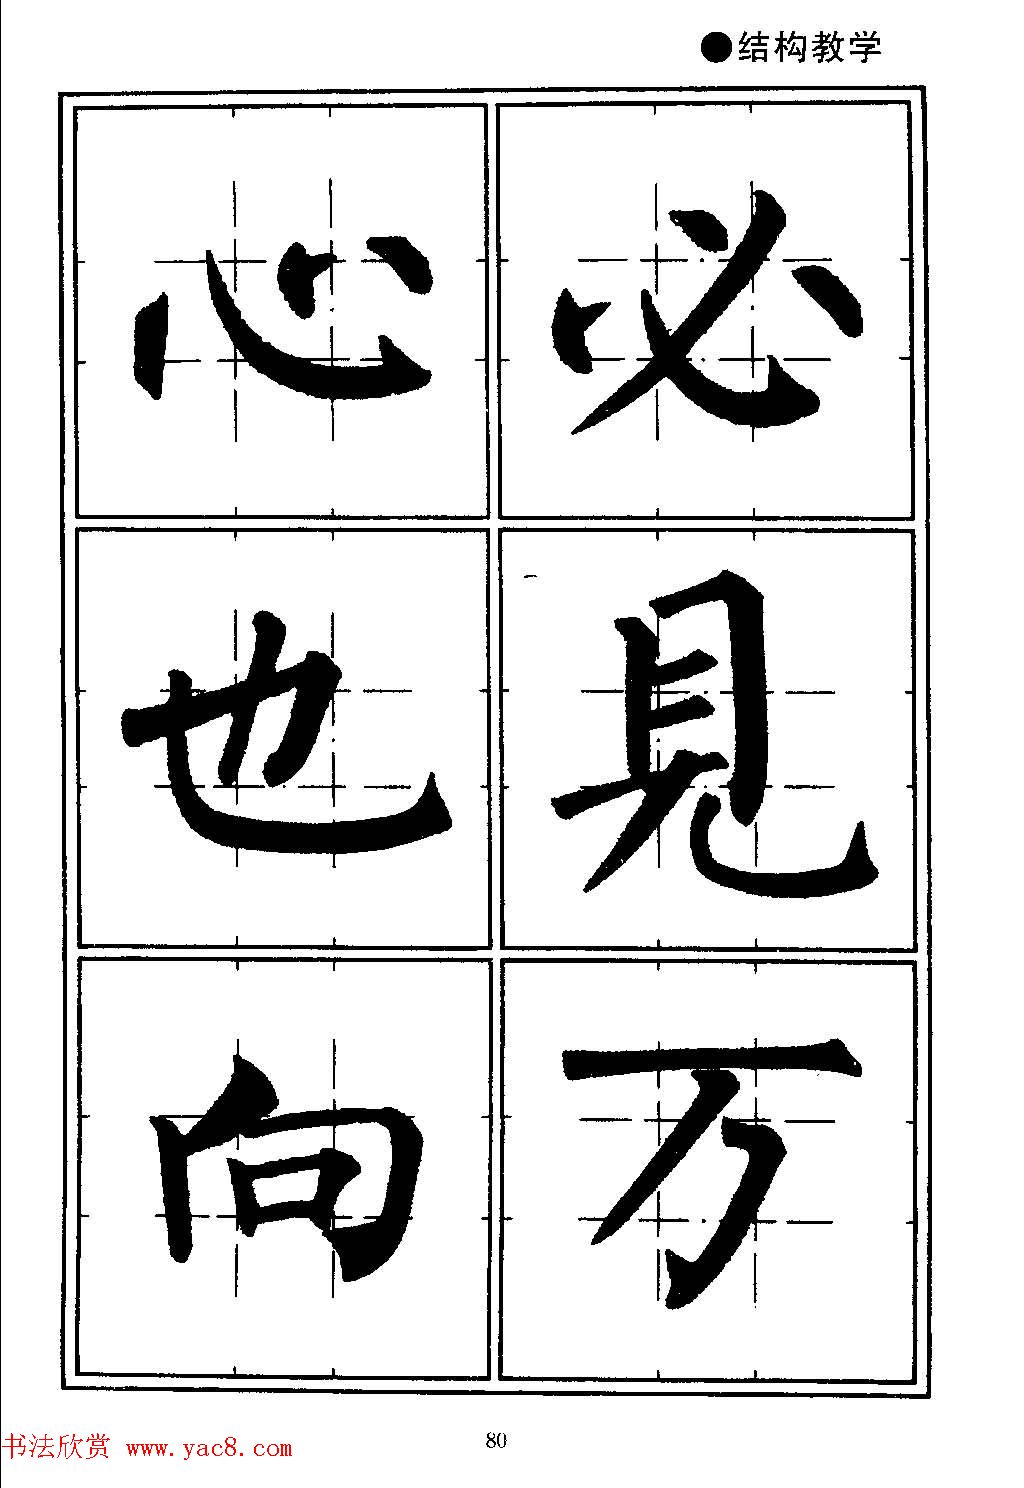 ●结构教学
心 必
也 見
向 万
80
书法欣赏 www.yac8.com